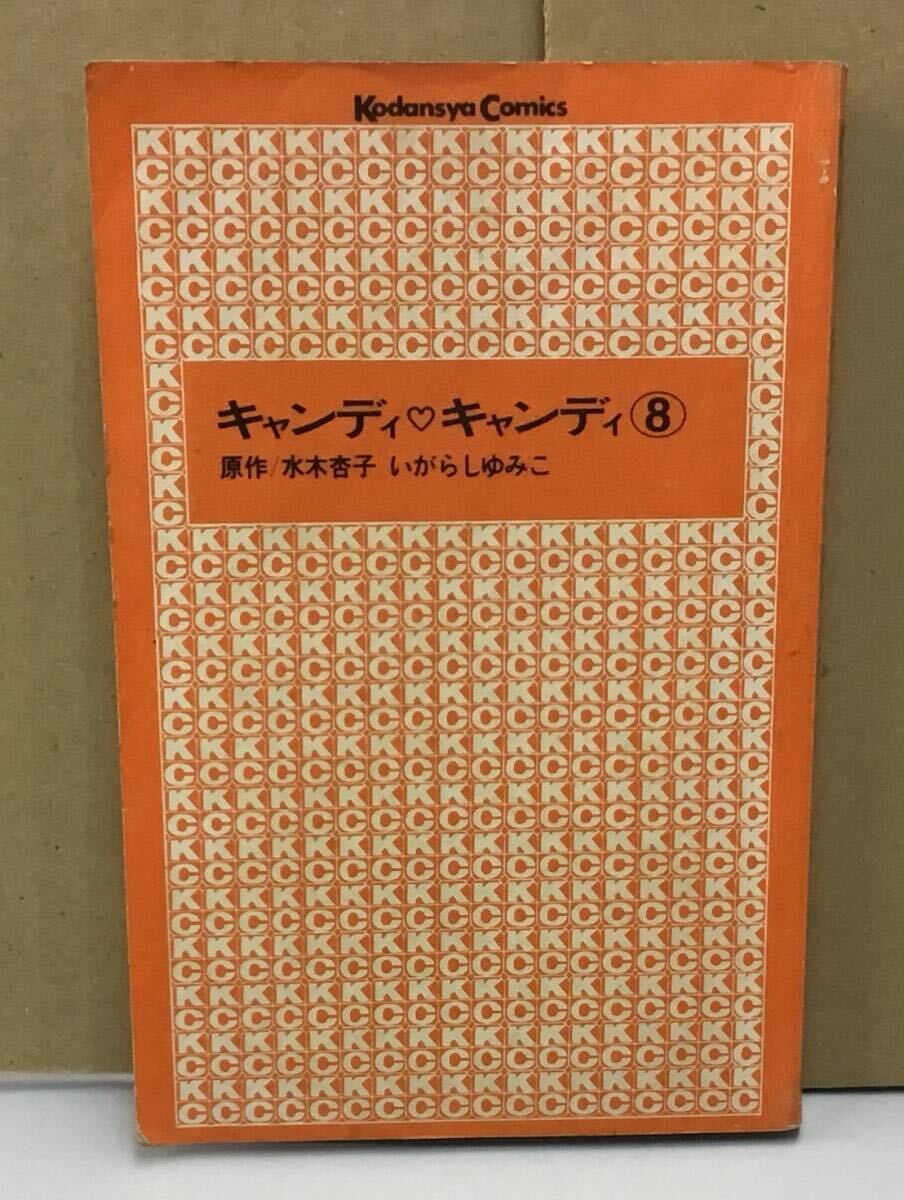 Kodansya Comics
キャンディ♡キャンディ⑧
原作/水木杏子 いがらしゆみこ